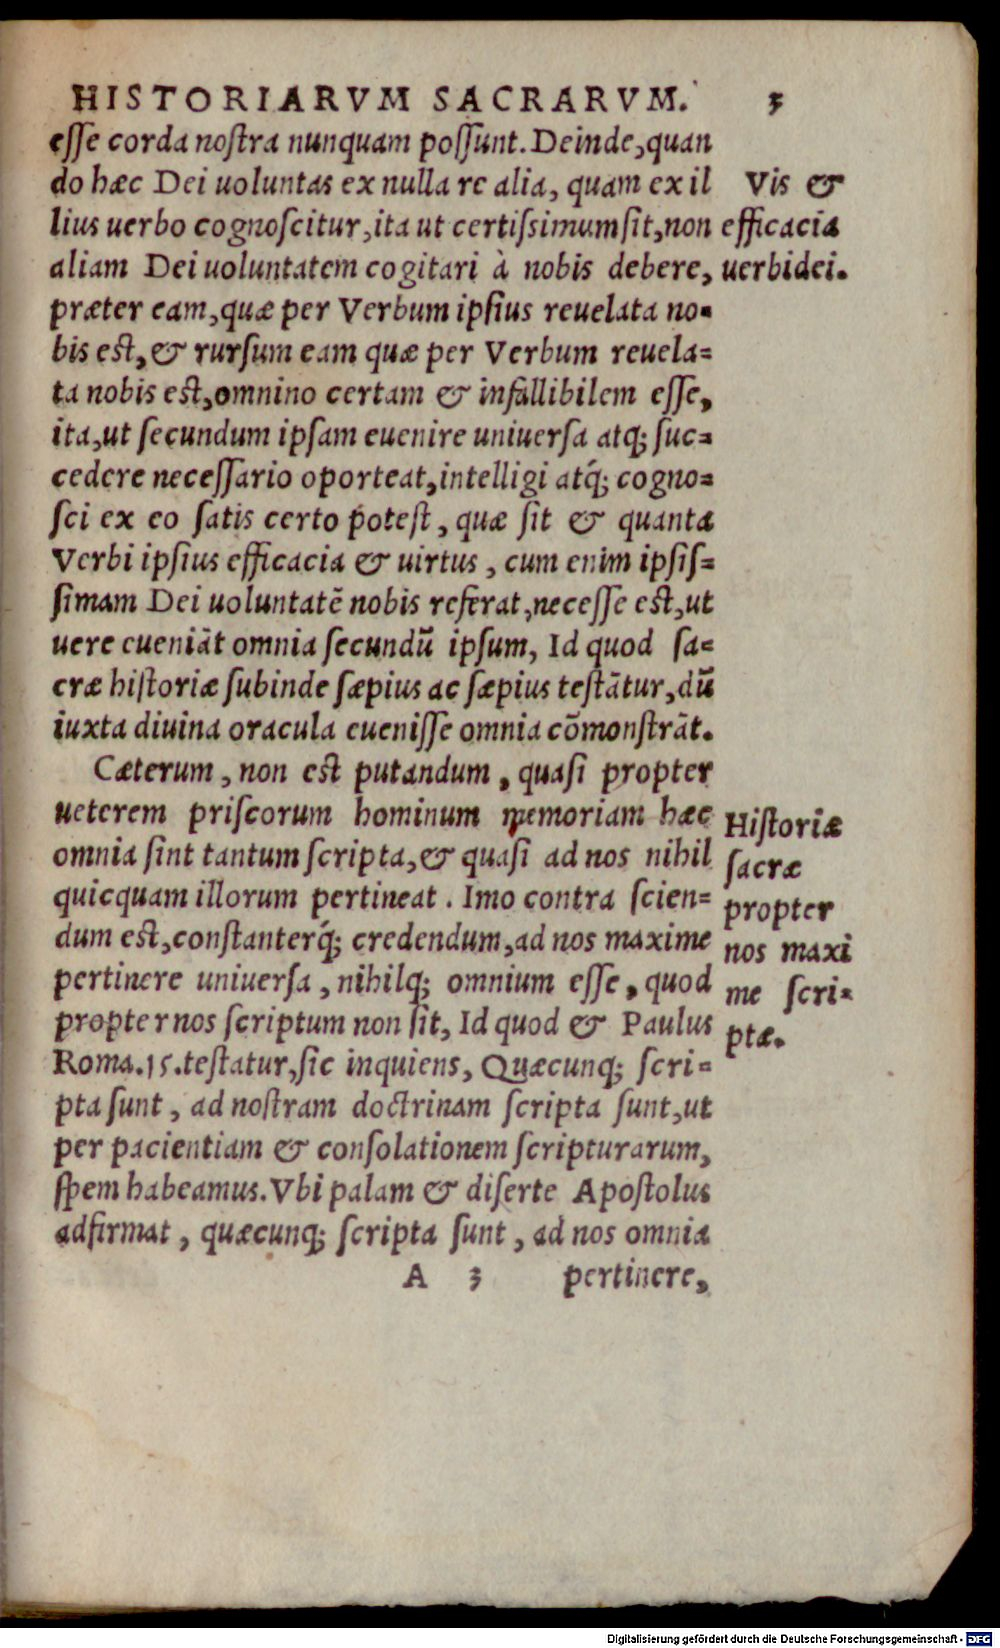 HISTORIARVM SACRARVM. 3
esse corda nostra nunquam possunt. Deinde, quan
do hæc Dei uoluntas ex nulla re alia, quam ex il
lius uerbo cognoscitur, ita ut certissimum sit, non
aliam Dei uoluntatem cogitari à nobis debere,
præter eam, quæ per Verbum ipsius reuelata no-
bis est, & rursum eam quæ per Verbum reuela-
ta nobis est, omnino certam & infallibilem esse,
ita, ut secundum ipsam euenire uniuersa atq; suc-
cedere necessario oporteat, intelligi atq́; cogno-
sci ex eo satis certo potest, quæ sit & quanta
Verbi ipsius efficacia & uirtus, cum enim ipsis-
simam Dei uoluntatē nobis referat, necesse est, ut
uere eueniāt omnia secundū ipsum, Id quod sa-
cræ historiæ subinde sæpius ac sæpius testātur, dū
iuxta diuina oracula euenisse omnia cōmonstrāt.
Cæterum, non est putandum, quasi propter
ueterem priscorum hominum memoriam hæc
omnia sint tantum scripta, & quasi ad nos nihil
quicquam illorum pertineat. Imo contra scien-
dum est, constanterq́; credendum, ad nos maxime
pertinere uniuersa, nihilq; omnium esse, quod
propter nos scriptum non sit, Id quod & Paulus
Roma. 15. testatur, sic inquiens, Quæcunq; scri-
pta sunt, ad nostram doctrinam scripta sunt, ut
per pacientiam & consolationem scripturarum,
spem habeamus. Vbi palam & diserte Apostolus
adfirmat, quæcunq; scripta sunt, ad nos omnia
A 3 pertinere,
Vis &
efficacia
uerbi dei.
Historiæ
sacræ
propter
nos maxi
me scri-
ptæ.
Digitalisierung gefördert durch die Deutsche Forschungsgemeinschaft - DFG